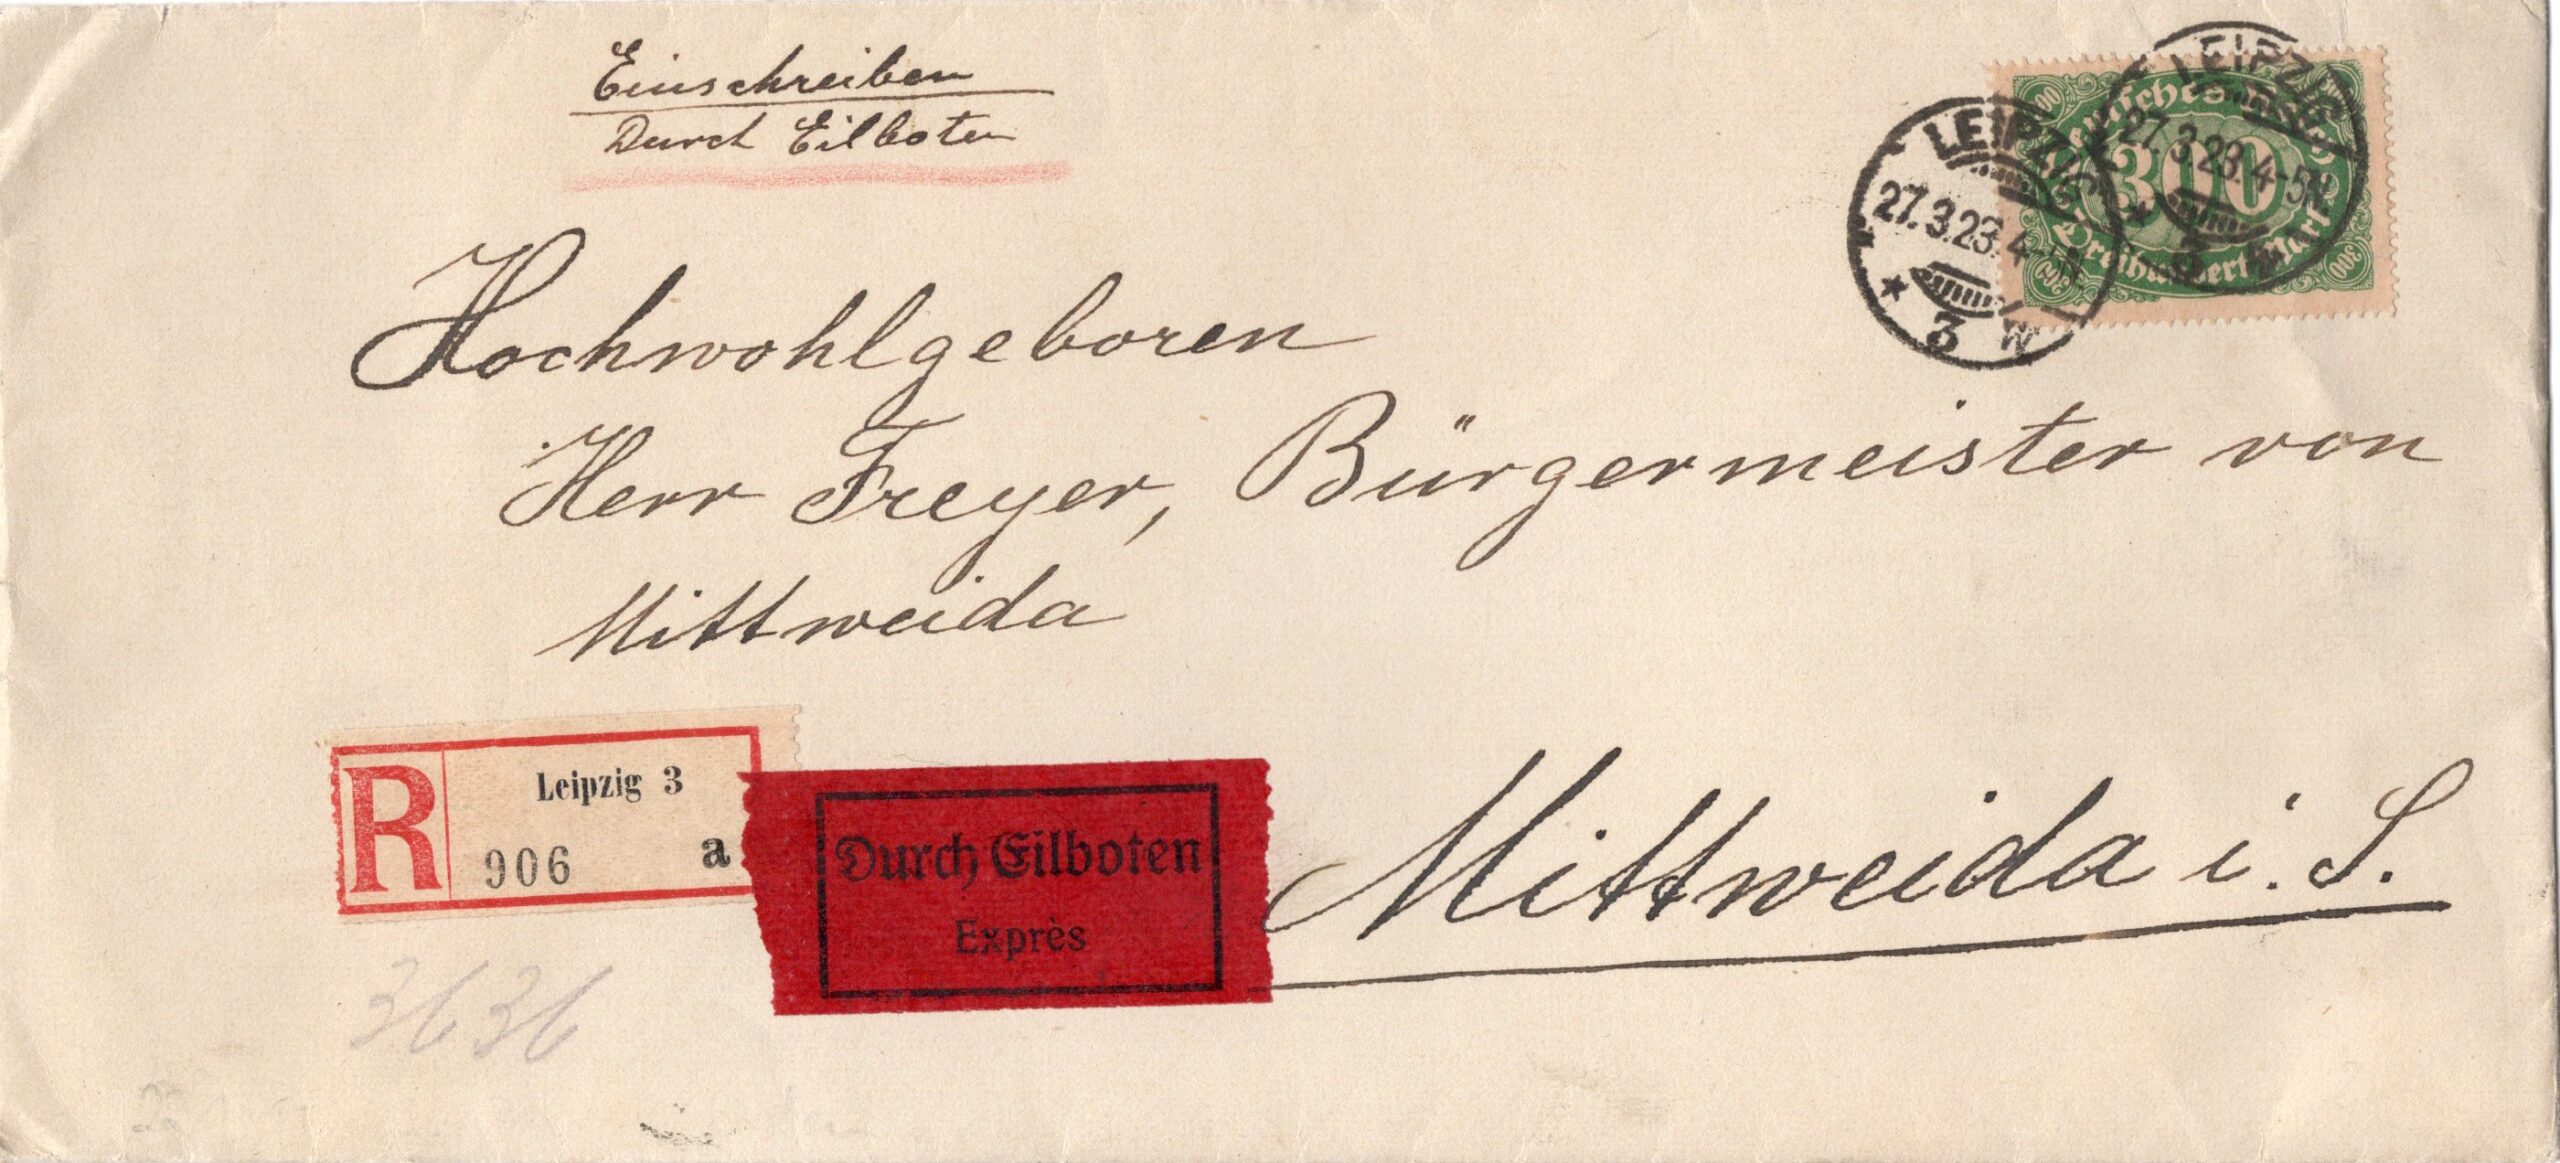 Einschreiben
Durch Eilboten
LEIPZIG
27.3.23.4-5N.
* 3 W
LEIPZIG
27.3.23.4-5N.
* 3
300
300
Hochwohlgeboren
Herr Freyer, Bürgermeister von
Mittweida
R Leipzig 3
906 a
Durch Eilboten
Exprès
Mittweida i. S.
3636